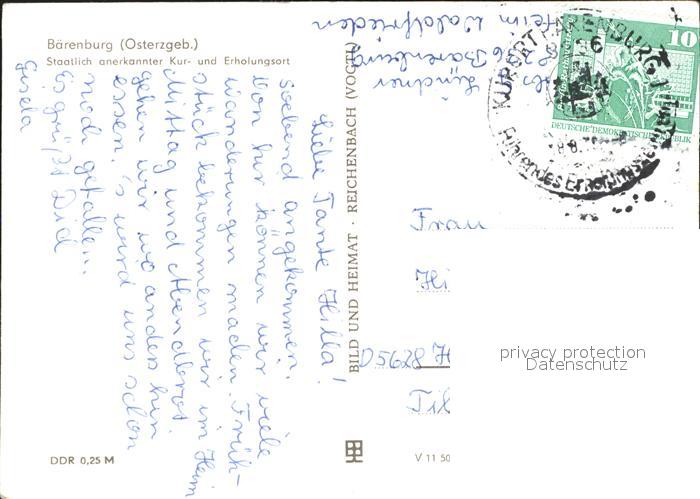 Bärenburg (Osterzgeb.)
Staatlich anerkannter Kur- und Erholungsort
Liebe Tante Hilla!
Soeben angekommen.
Von hier können wir viele
Wanderungen machen. Früh-
stück bekommen wir im Heim
Mittag und Abendbrot
gehen wir wo anders hin
essen. s wird uns schon
noch gefallen...
Es grüßt Dich
Gisela
DDR 0,25 M
BILD UND HEIMAT · REICHENBACH (VOGTL)
V 11 50
Lindner
8236 Bärenburg
Heim Waldfrieden
KURORT BÄRENBURG
10
DEUTSCHE DEMOKRATISCHE REPUBLIK
Frau
Hi
D5628 H
privacy protection
Datenschutz